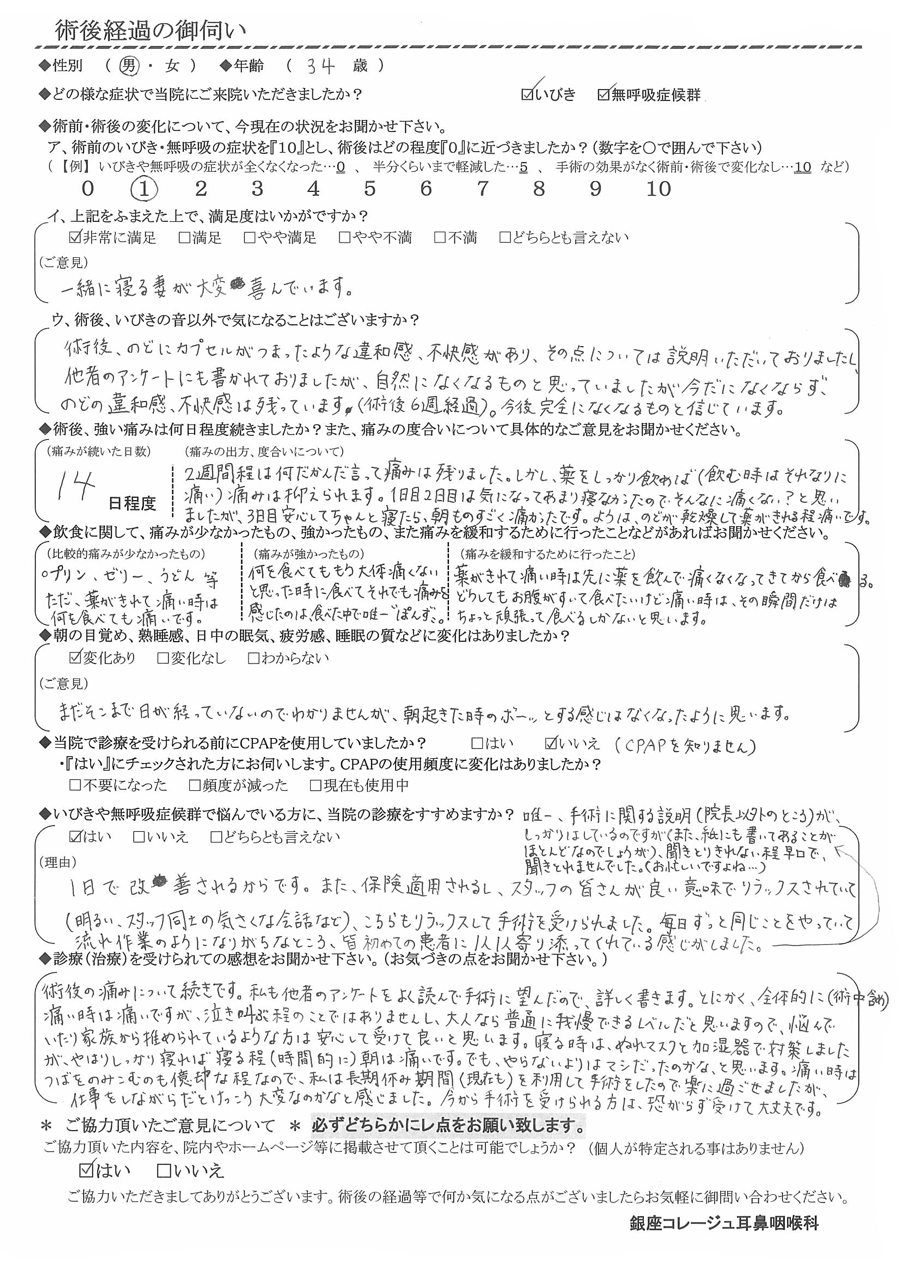 術後経過の御伺い
◆性別 （ 男 ・ 女 ） ◆年齢 （ 34 歳 ）
◆どの様な症状で当院にご来院いただきましたか？ ☑いびき ☑無呼吸症候群
◆術前・術後の変化について、今現在の状況をお聞かせ下さい。
ア、術前のいびき・無呼吸の症状を『10』とし、術後はどの程度『0』に近づきましたか？（数字を〇で囲んで下さい）
（【例】 いびきや無呼吸の症状が全くなくなった…0 、 半分くらいまで軽減した…5 、 手術の効果がなく術前・術後で変化なし…10 など）
0 1 2 3 4 5 6 7 8 9 10
イ、上記をふまえた上で、満足度はいかがですか？
☑非常に満足 □満足 □やや満足 □やや不満 □不満 □どちらとも言えない
（ご意見）
一緒に寝る妻が大変喜んでいます。
ウ、術後、いびきの音以外で気になることはございますか？
術後、のどにカプセルがつまったような違和感、不快感があり、その点については説明いただいておりましたし、
他者のアンケートにも書かれておりましたが、自然になくなるものと思っていましたが今だになくならず、
のどの違和感、不快感は残っています。(術後6週経過)。今後完全になくなるものと信じています。
◆術後、強い痛みは何日程度続きましたか？また、痛みの度合いについて具体的なご意見をお聞かせください。
（痛みが続いた日数） （痛みの出方、度合いについて）
14 日程度
2週間程は何だかんだ言って痛みは残りました。しかし、薬をしっかり飲めば(飲む時はそれなりに
痛い)痛みは抑えられます。1日目2日目は気になってあまり寝なかったのでそんなに痛くない？と思い
ましたが、3日目安心してちゃんと寝たら、朝ものすごく痛かったです。ようは、のどが乾燥して薬がきれる程痛いです。
◆飲食に関して、痛みが少なかったもの、強かったもの、また痛みを緩和するために行ったことなどがあればお聞かせください。
（比較的痛みが少なかったもの） （痛みが強かったもの） （痛みを緩和するために行ったこと）
○プリン、ゼリー、うどん 等
ただ、薬がきれて痛い時は
何を食べても痛いです。
何を食べてももう大体痛くない
と思った時に食べてそれでも痛みを
感じたのは、食べた中で唯一"ぽんず"。
薬がきれて痛い時は先に薬を飲んで痛くなくなってきてから食べる。
どうしてもお腹がすいて食べたいけど痛い時は、その瞬間だけは
ちょっと頑張って食べるしかないと思います。
◆朝の目覚め、熟睡感、日中の眠気、疲労感、睡眠の質などに変化はありましたか？
☑変化あり □変化なし □わからない
（ご意見）
まだそこまで日が経っていないのでわかりませんが、朝起きた時のボーッとする感じはなくなったように思います。
◆当院で診療を受けられる前にCPAPを使用していましたか？ □はい ☑いいえ (CPAPを知りません)
・『はい』にチェックされた方にお伺いします。CPAPの使用頻度に変化はありましたか？
□不要になった □頻度が減った □現在も使用中
◆いびきや無呼吸症候群で悩んでいる方に、当院の診療をすすめますか？
☑はい □いいえ □どちらとも言えない
唯一、手術に関する説明(院長以外のところ)が、
しっかりはしているのですが(また、紙にも書いてあることが
ほとんどなのでしょうが)、聞きとりきれない程早口で、
聞きとれませんでした。(お忙しいですよね…)
（理由）
1日で改善されるからです。また、保険適用されるし、スタッフの皆さんが良い意味でリラックスされていて
(明るい、スタッフ同士の気さくな会話など)、こちらもリラックスして手術を受けられました。毎日ずっと同じことをやっていて
流れ作業のようになりがちなところ、皆初めての患者に1人1人寄り添ってくれている感じがしました。
◆診療（治療）を受けられての感想をお聞かせ下さい。（お気づきの点をお聞かせ下さい。）
術後の痛みについて続きです。私も他者のアンケートをよく読んで手術に望んだので、詳しく書きます。とにかく、全体的に(術中含め)
痛い時は痛いですが、泣き叫ぶ程のことではありませんし、大人なら普通に我慢できるレベルだと思いますので、悩んで
いたり家族から推められているような方は安心して受けて良いと思います。寝る時は、ぬれマスクと加湿器で対策しました
が、やはりしっかり寝れば寝る程(時間的に)朝は痛いです。でも、やらないよりはマシだったのかな、と思います。痛い時は
つばをのみこむのも億劫な程なので、私は長期休み期間(現在も)を利用して手術をしたので楽に過ごせましたが、
仕事をしながらだとけっこう大変なのかなと感じました。今から手術を受けられる方は、恐がらず受けて大丈夫です。
＊ ご協力頂いたご意見について ＊ 必ずどちらかにレ点をお願い致します。
ご協力頂いた内容を、院内やホームページ等に掲載させて頂くことは可能でしょうか？ （個人が特定される事はありません）
☑はい □いいえ
ご協力いただきましてありがとうございます。術後の経過等で何か気になる点がございましたらお気軽に御問い合わせください。
銀座コレージュ耳鼻咽喉科